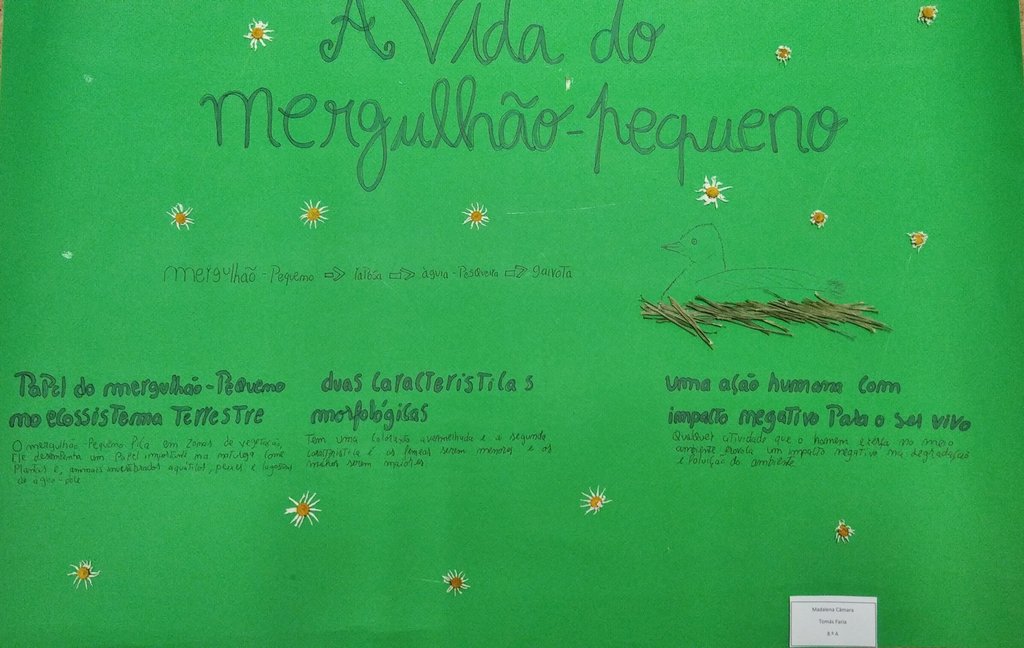 A Vida do
mergulhão-pequeno
mergulhão-Pequeno ⇨ ⇨ águia-Pesqueira ⇨ gaivota
Papel do mergulhão-Pequeno
no ecossistema Terrestre
O mergulhão-Pequeno Fica em zonas de vegetação,
Ele desempenha um Papel importante na natureza como
Plantas e, animais invertebrados aquáticos, peixes e lagostas
de água-doce
duas Características
morfológicas
Tem uma coloração avermelhada e a segunda
característica é as fêmeas serem menores e os
machos serem maiores
uma ação humana com
impacto negativo Para o ser vivo
Qualquer atividade que o homem exerça no meio
ambiente provoca um impacto negativo na degradação
e Poluição do ambiente
Madalena Câmara
Tomás Faria
8.º A